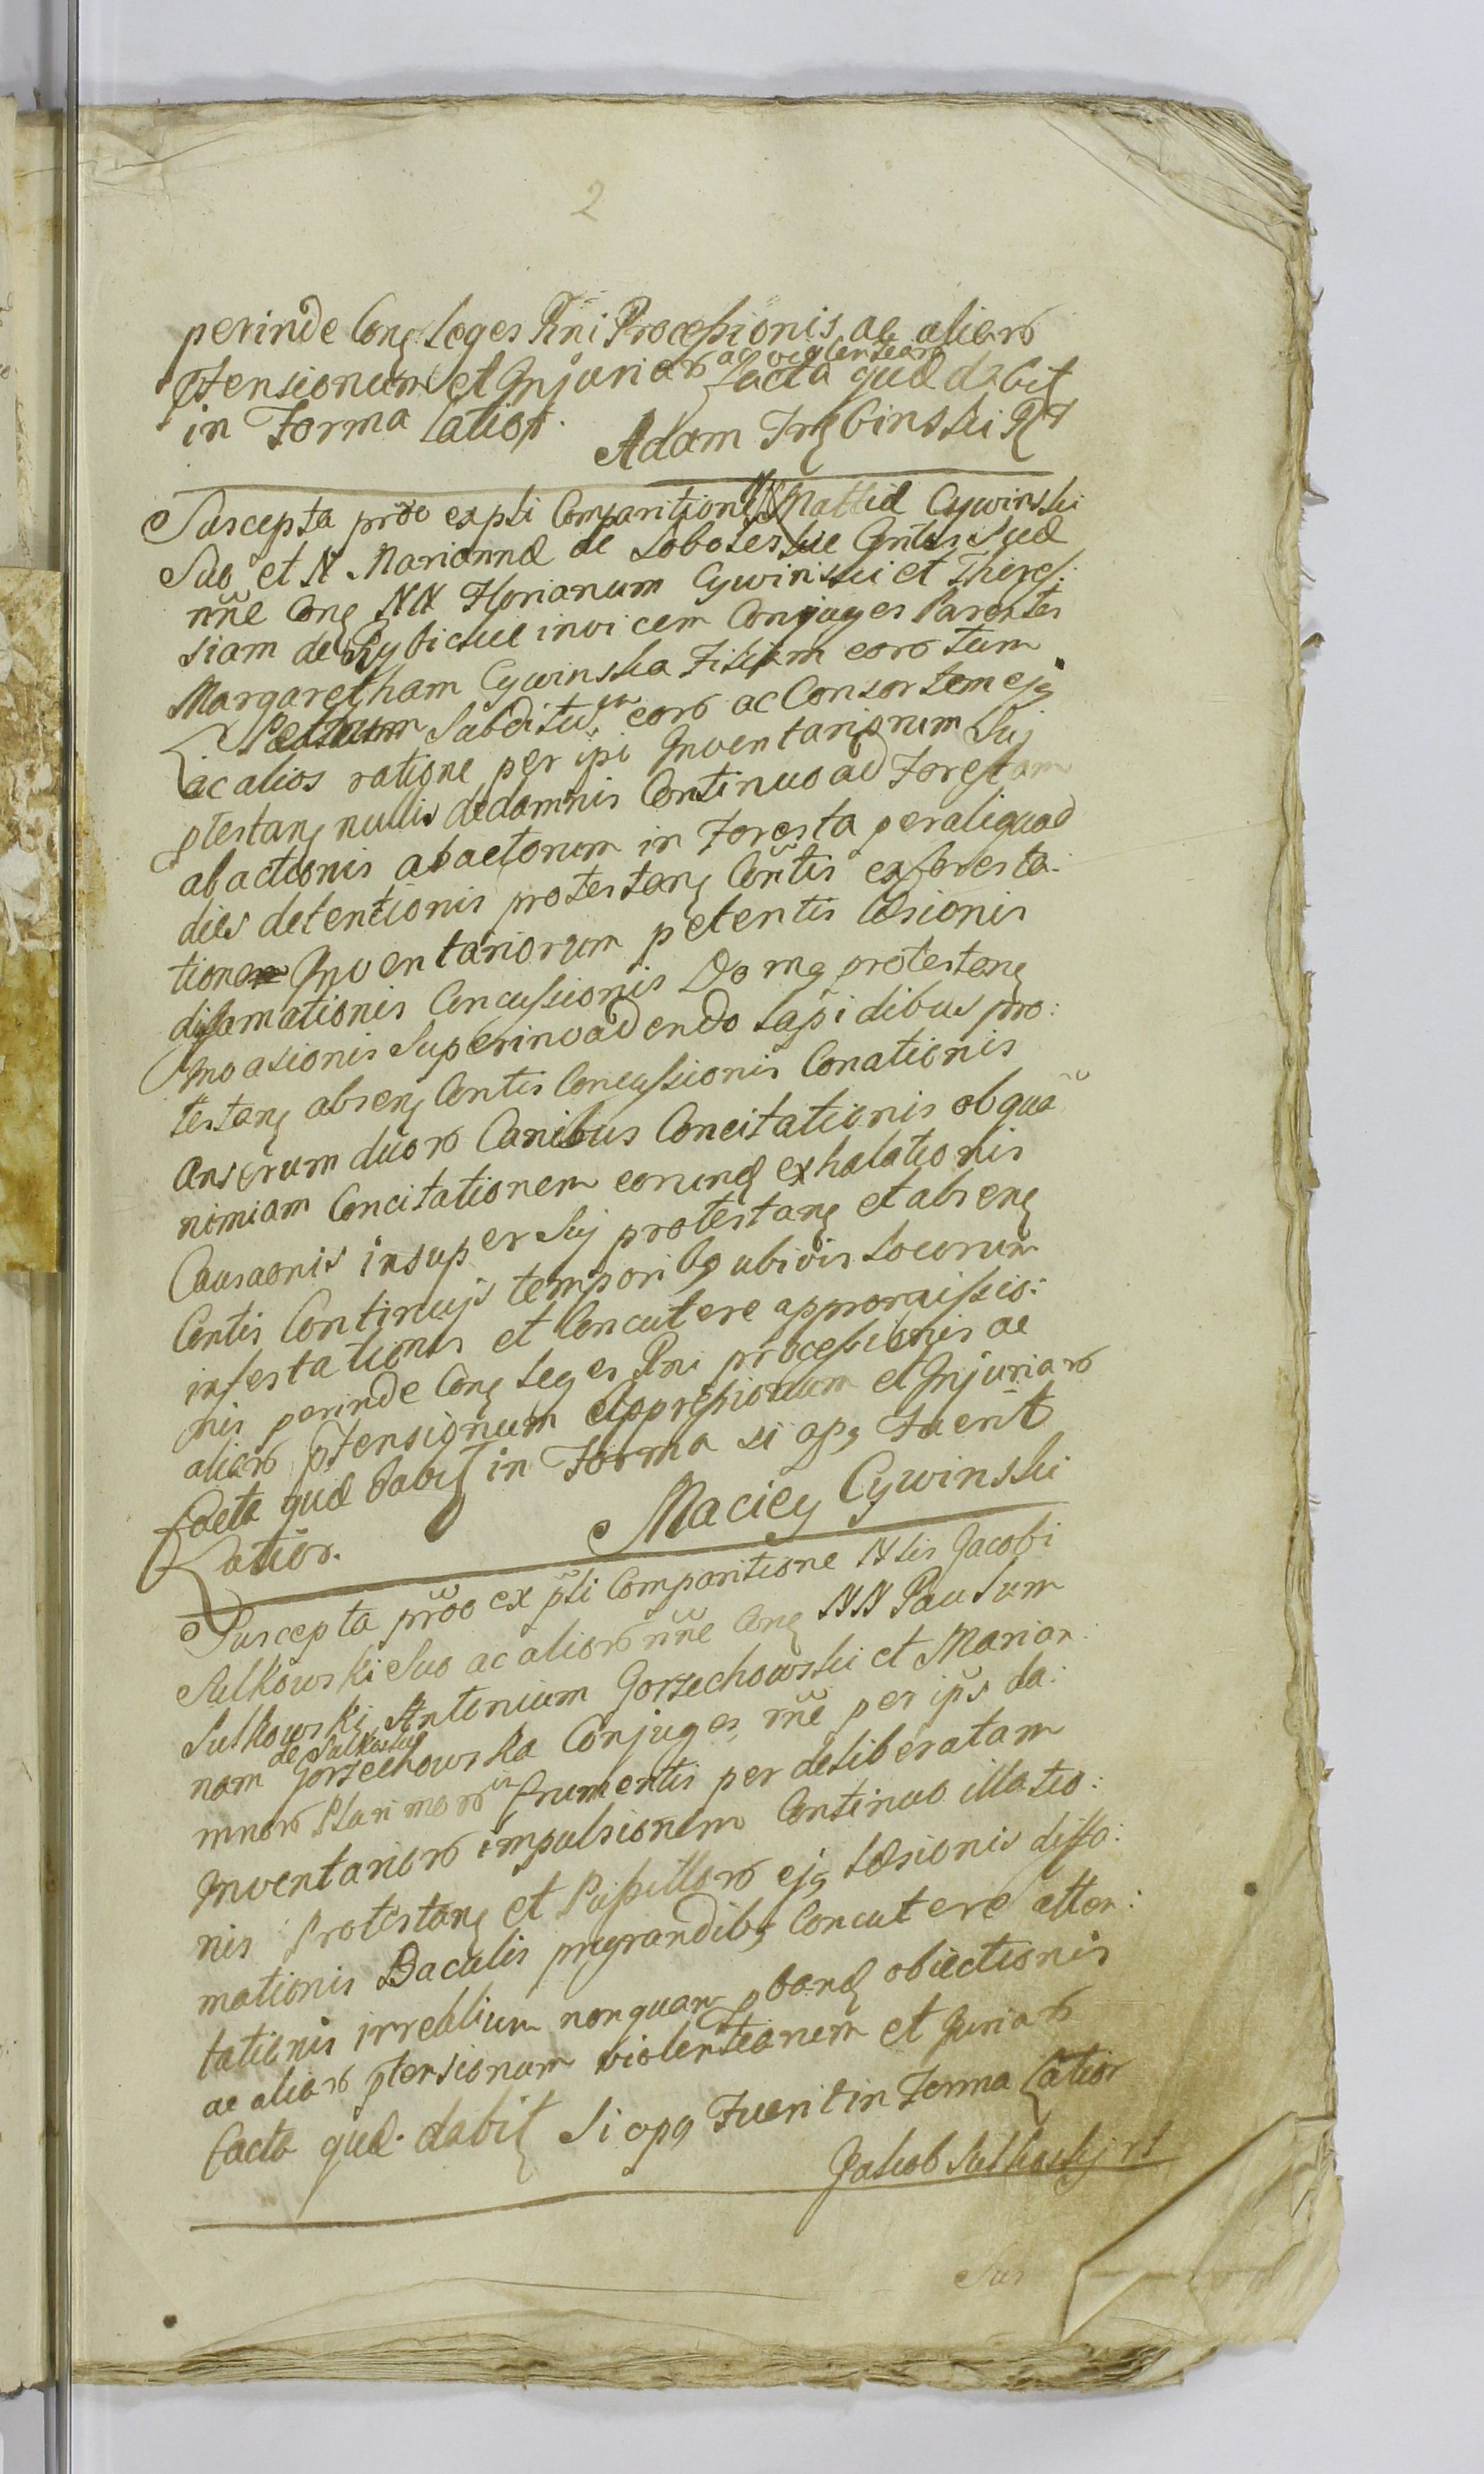 2
perinde Cong Leges Rni Processionis ac aliaro
ptensionum et Injuriaro ac violentiaro facta quæ dabit
in Forma Latior. Adam Trębinski
Suscepta prõõ expti Comparitione N Mattiæ Cywinski
Suo et N Mariannæ de Coñtis Suæ
nñe Cong NN Florianum Cywinski et Theres:
siam de Rybickie invicem Conjuges Parentes
Margaretham Cywinska Filiam eoro tum
Subditum eoro ac Consortem ejg
ac alios ratione per ipi Inventariorum Suj
ptestang nullis de damnis Continuo ad Forestam
abactionis abactorum in Foresta per aliquod
dies detentionis protestang Coñtis ex foresta:
tione Inventariorum petentis Læsionis
diffamationis Concussionis Domg protestang
Invasionis Superinvadendo Lapidibus pro:
testang abseng Contis Concussionis Conationis
Anserum duoro Canibus Concitationis ob quã
nimiam Concitationem eorund exhalationis
Causaonis insuper Suj protestang et abseng
Contis Continujs temporibg ubivis Locorum
infestationis et Concutere appromissio:
nis perinde Cong Leges Rni processionis ac
aliaro ptensionum oppressionum et Injuriaro
facta quæ dabit in Forma si opg Fuerit
Latior. Maciey Cywinski
Suscepta prõõ ex pti Comparitione Nlis Jacobi
Sulkowski Suo ac alioro nñe Cong NN Paulum
Sulkowski Antonium Gorzechowski et Marian:
nam de Sulkoskie Gorzechowska Conjuges rñe per ips da:
mnoro Plurimoro in frumentis per deliberatam
Inventarioro impulsionem Continuo illatio:
nis Protestang et Pupilloro ejg Læsionis diffa:
mationis Baculis pregrandibg Concutere atten:
tationis irreblium nonquam pband obiectionis
ac aliaro ptensionum violentianem et Juriaro
facta quæ dabit Si opg Fuerit in Forma Latior
Jakob Sulkoskj
Sus